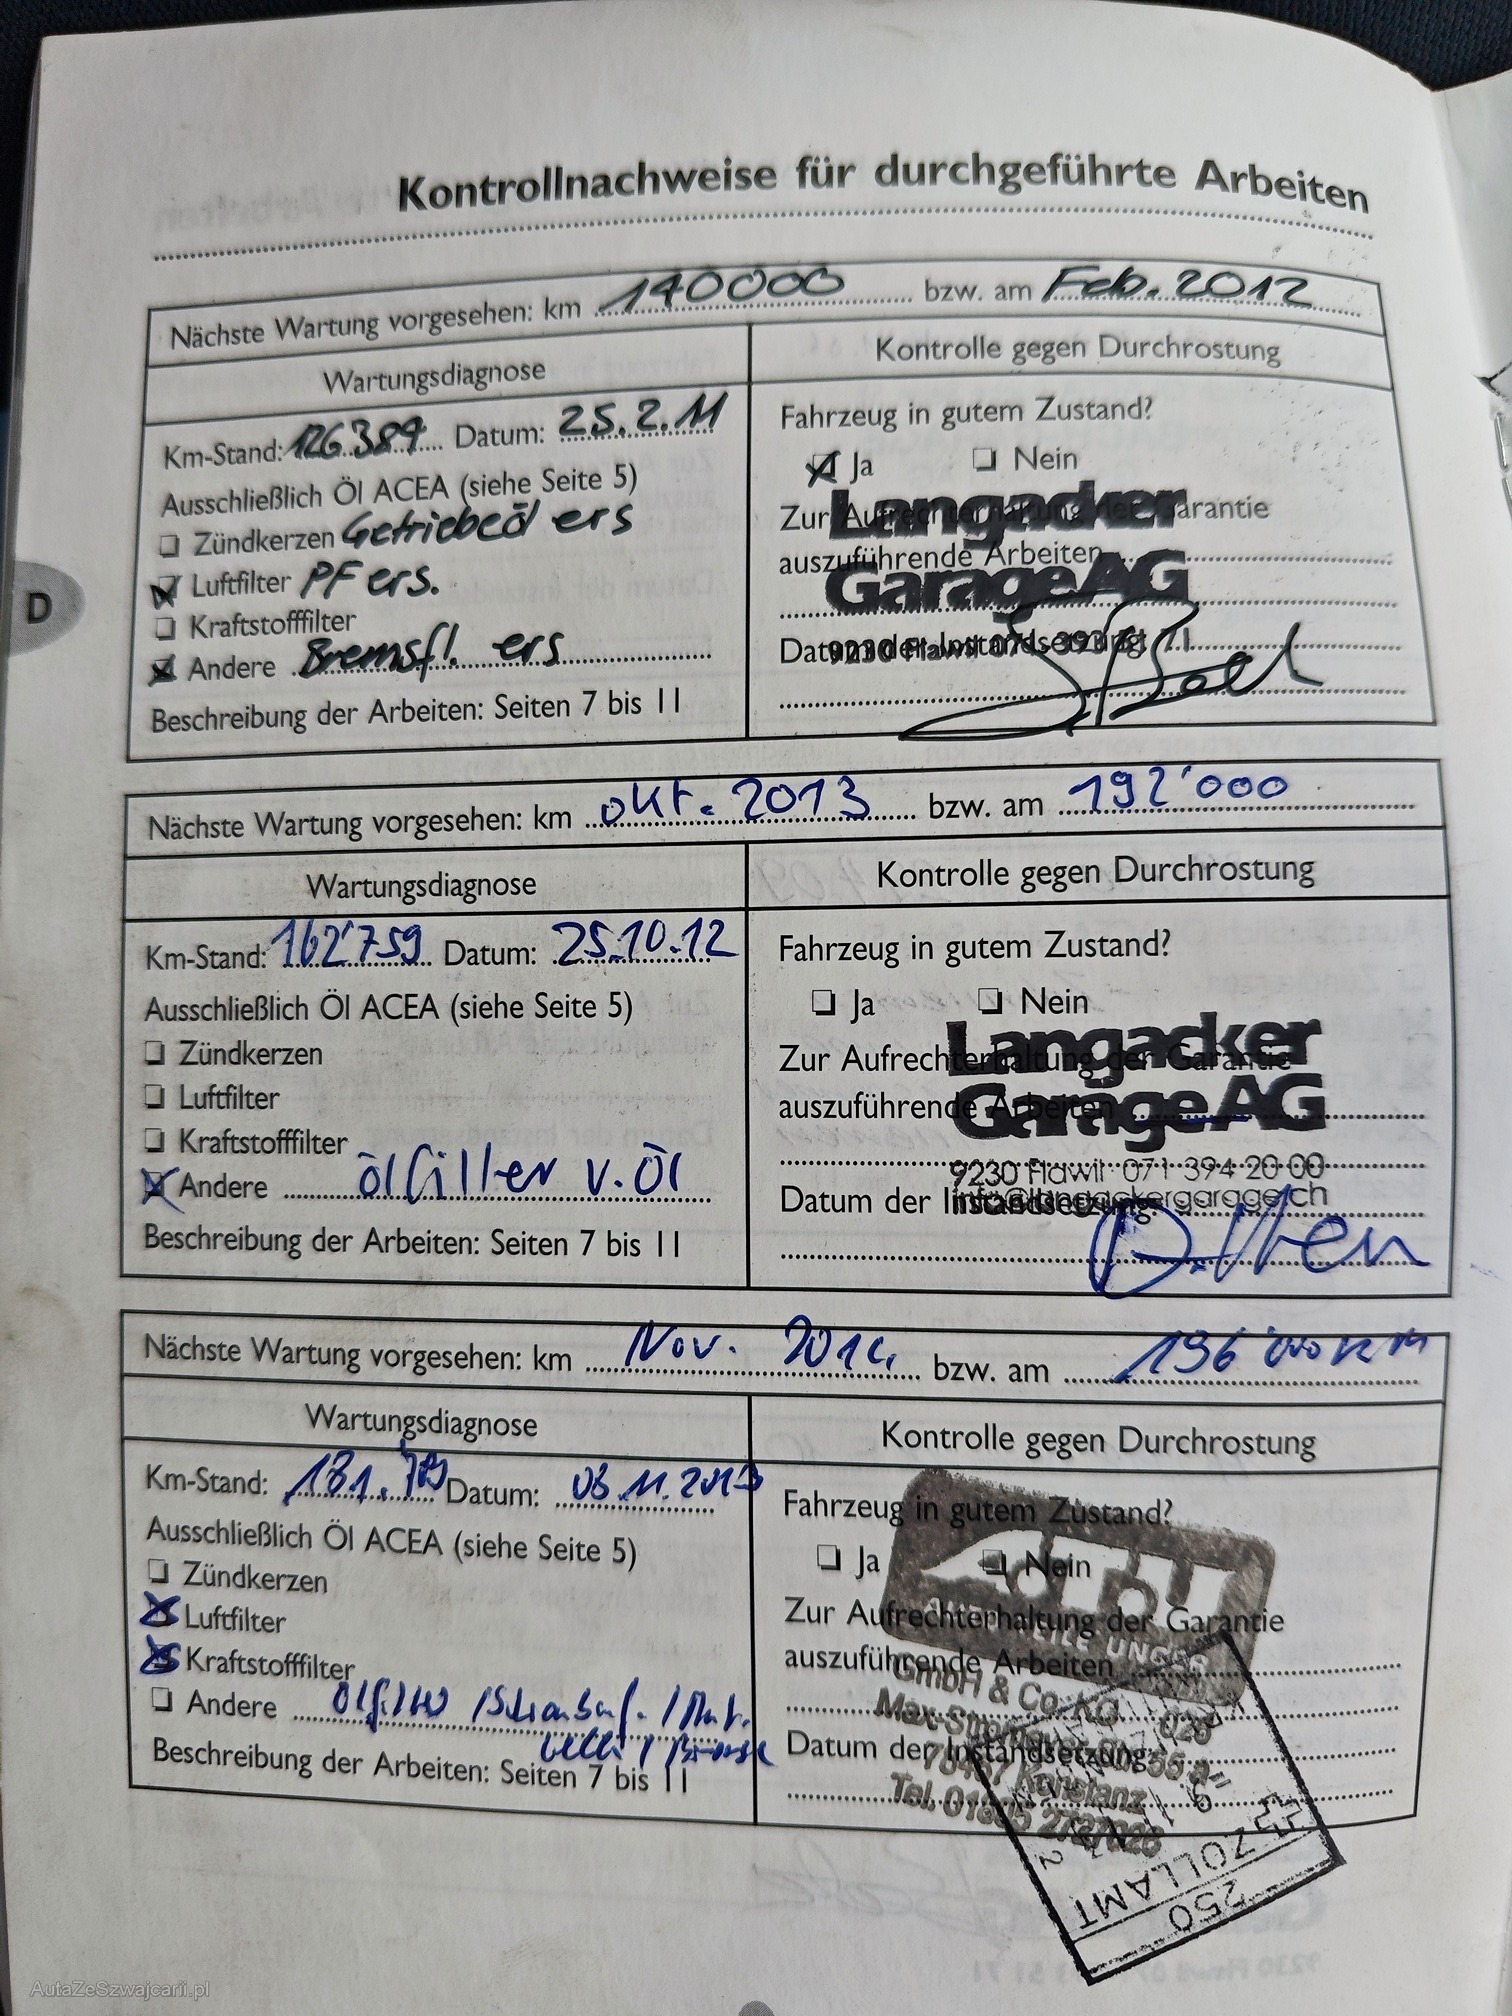 Kontrollnachweise für durchgeführte Arbeiten
Nächste Wartung vorgesehen: km 140000 bzw. am Feb. 2012
Wartungsdiagnose
Kontrolle gegen Durchrostung
Km-Stand: 126389 Datum: 25.2.11
Ausschließlich Öl ACEA (siehe Seite 5)
Zündkerzen Getriebeöl ers
Luftfilter PF ers.
Kraftstofffilter
Andere Bremsfl. ers
Beschreibung der Arbeiten: Seiten 7 bis 11
Fahrzeug in gutem Zustand?
Ja Nein
Zur Aufrechterhaltung der Garantie
auszuführende Arbeiten
Datum der Instandsetzung:
Langacker
Garage AG
9230 Flawil 071 393
D
Nächste Wartung vorgesehen: km okt. 2013 bzw. am 192'000
Wartungsdiagnose
Kontrolle gegen Durchrostung
Km-Stand: 162'759 Datum: 25.10.12
Ausschließlich Öl ACEA (siehe Seite 5)
Zündkerzen
Luftfilter
Kraftstofffilter
Andere ölfilter v. Öl
Beschreibung der Arbeiten: Seiten 7 bis 11
Fahrzeug in gutem Zustand?
Ja Nein
Zur Aufrechterhaltung der Garantie
auszuführende Arbeiten
Datum der Instandsetzung:
Langacker
Garage AG
9230 Flawil 071 394 20 00
info@langackergarage.ch
Nächste Wartung vorgesehen: km Nov. 2014 bzw. am 196'000 km
Wartungsdiagnose
Kontrolle gegen Durchrostung
Km-Stand: 181. Datum: 08.11.2013
Ausschließlich Öl ACEA (siehe Seite 5)
Zündkerzen
Luftfilter
Kraftstofffilter
Andere Ölfilter
Beschreibung der Arbeiten: Seiten 7 bis 11
Fahrzeug in gutem Zustand?
Ja Nein
Zur Aufrechterhaltung der Garantie
auszuführende Arbeiten
Datum der Instandsetzung:
UNGER
GmbH & Co. KG
78467 Konstanz
ZOLLAMT
250
AutaZeSzwajcarii.pl